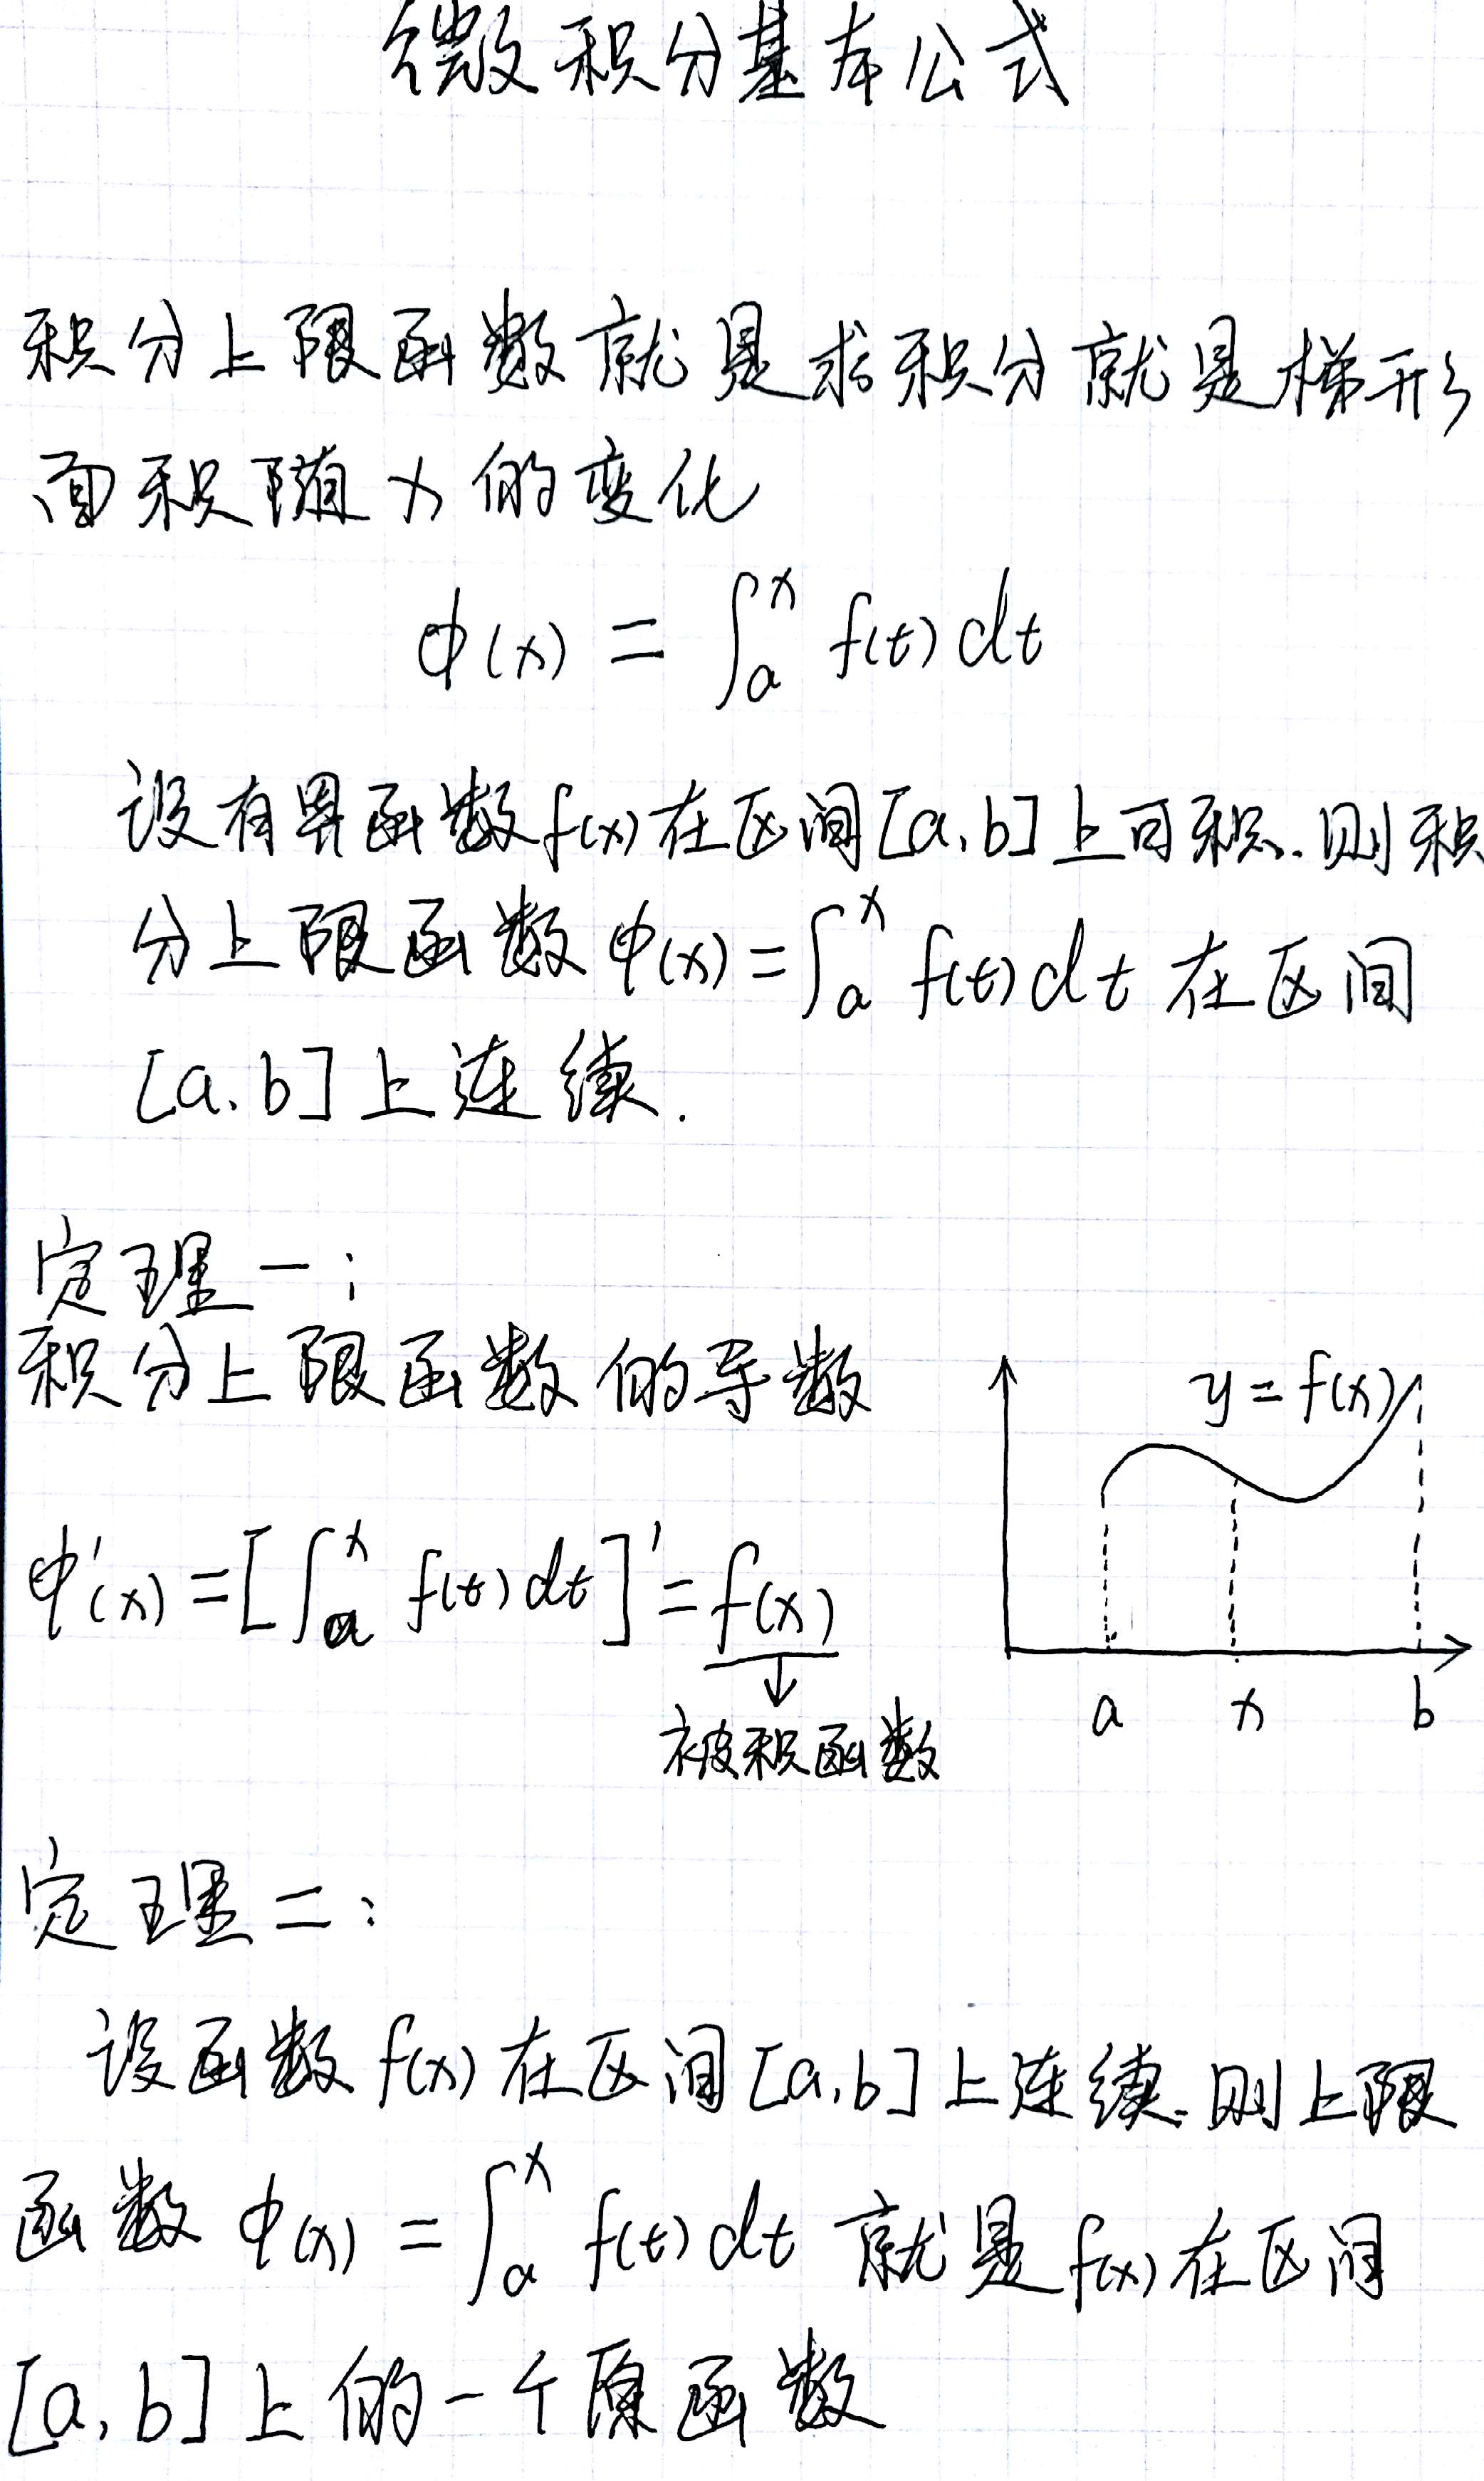 微积分基本公式
积分上限函数就是求积分就是梯形
面积随x的变化
φ(x) = ∫ₐˣ f(t) dt
设有界函数f(x)在区间[a,b]上可积.则积
分上限函数φ(x)=∫ₐˣ f(t)dt 在区间
[a,b]上连续.
定理一:
积分上限函数的导数
y=f(x)
φ'(x)=[∫ₐˣ f(t)dt]'=f(x)
↓
a x b
被积函数
定理二:
设函数f(x)在区间[a,b]上连续.则上限
函数 φ(x) = ∫ₐˣ f(t)dt 就是f(x)在区间
[a,b]上的一个原函数